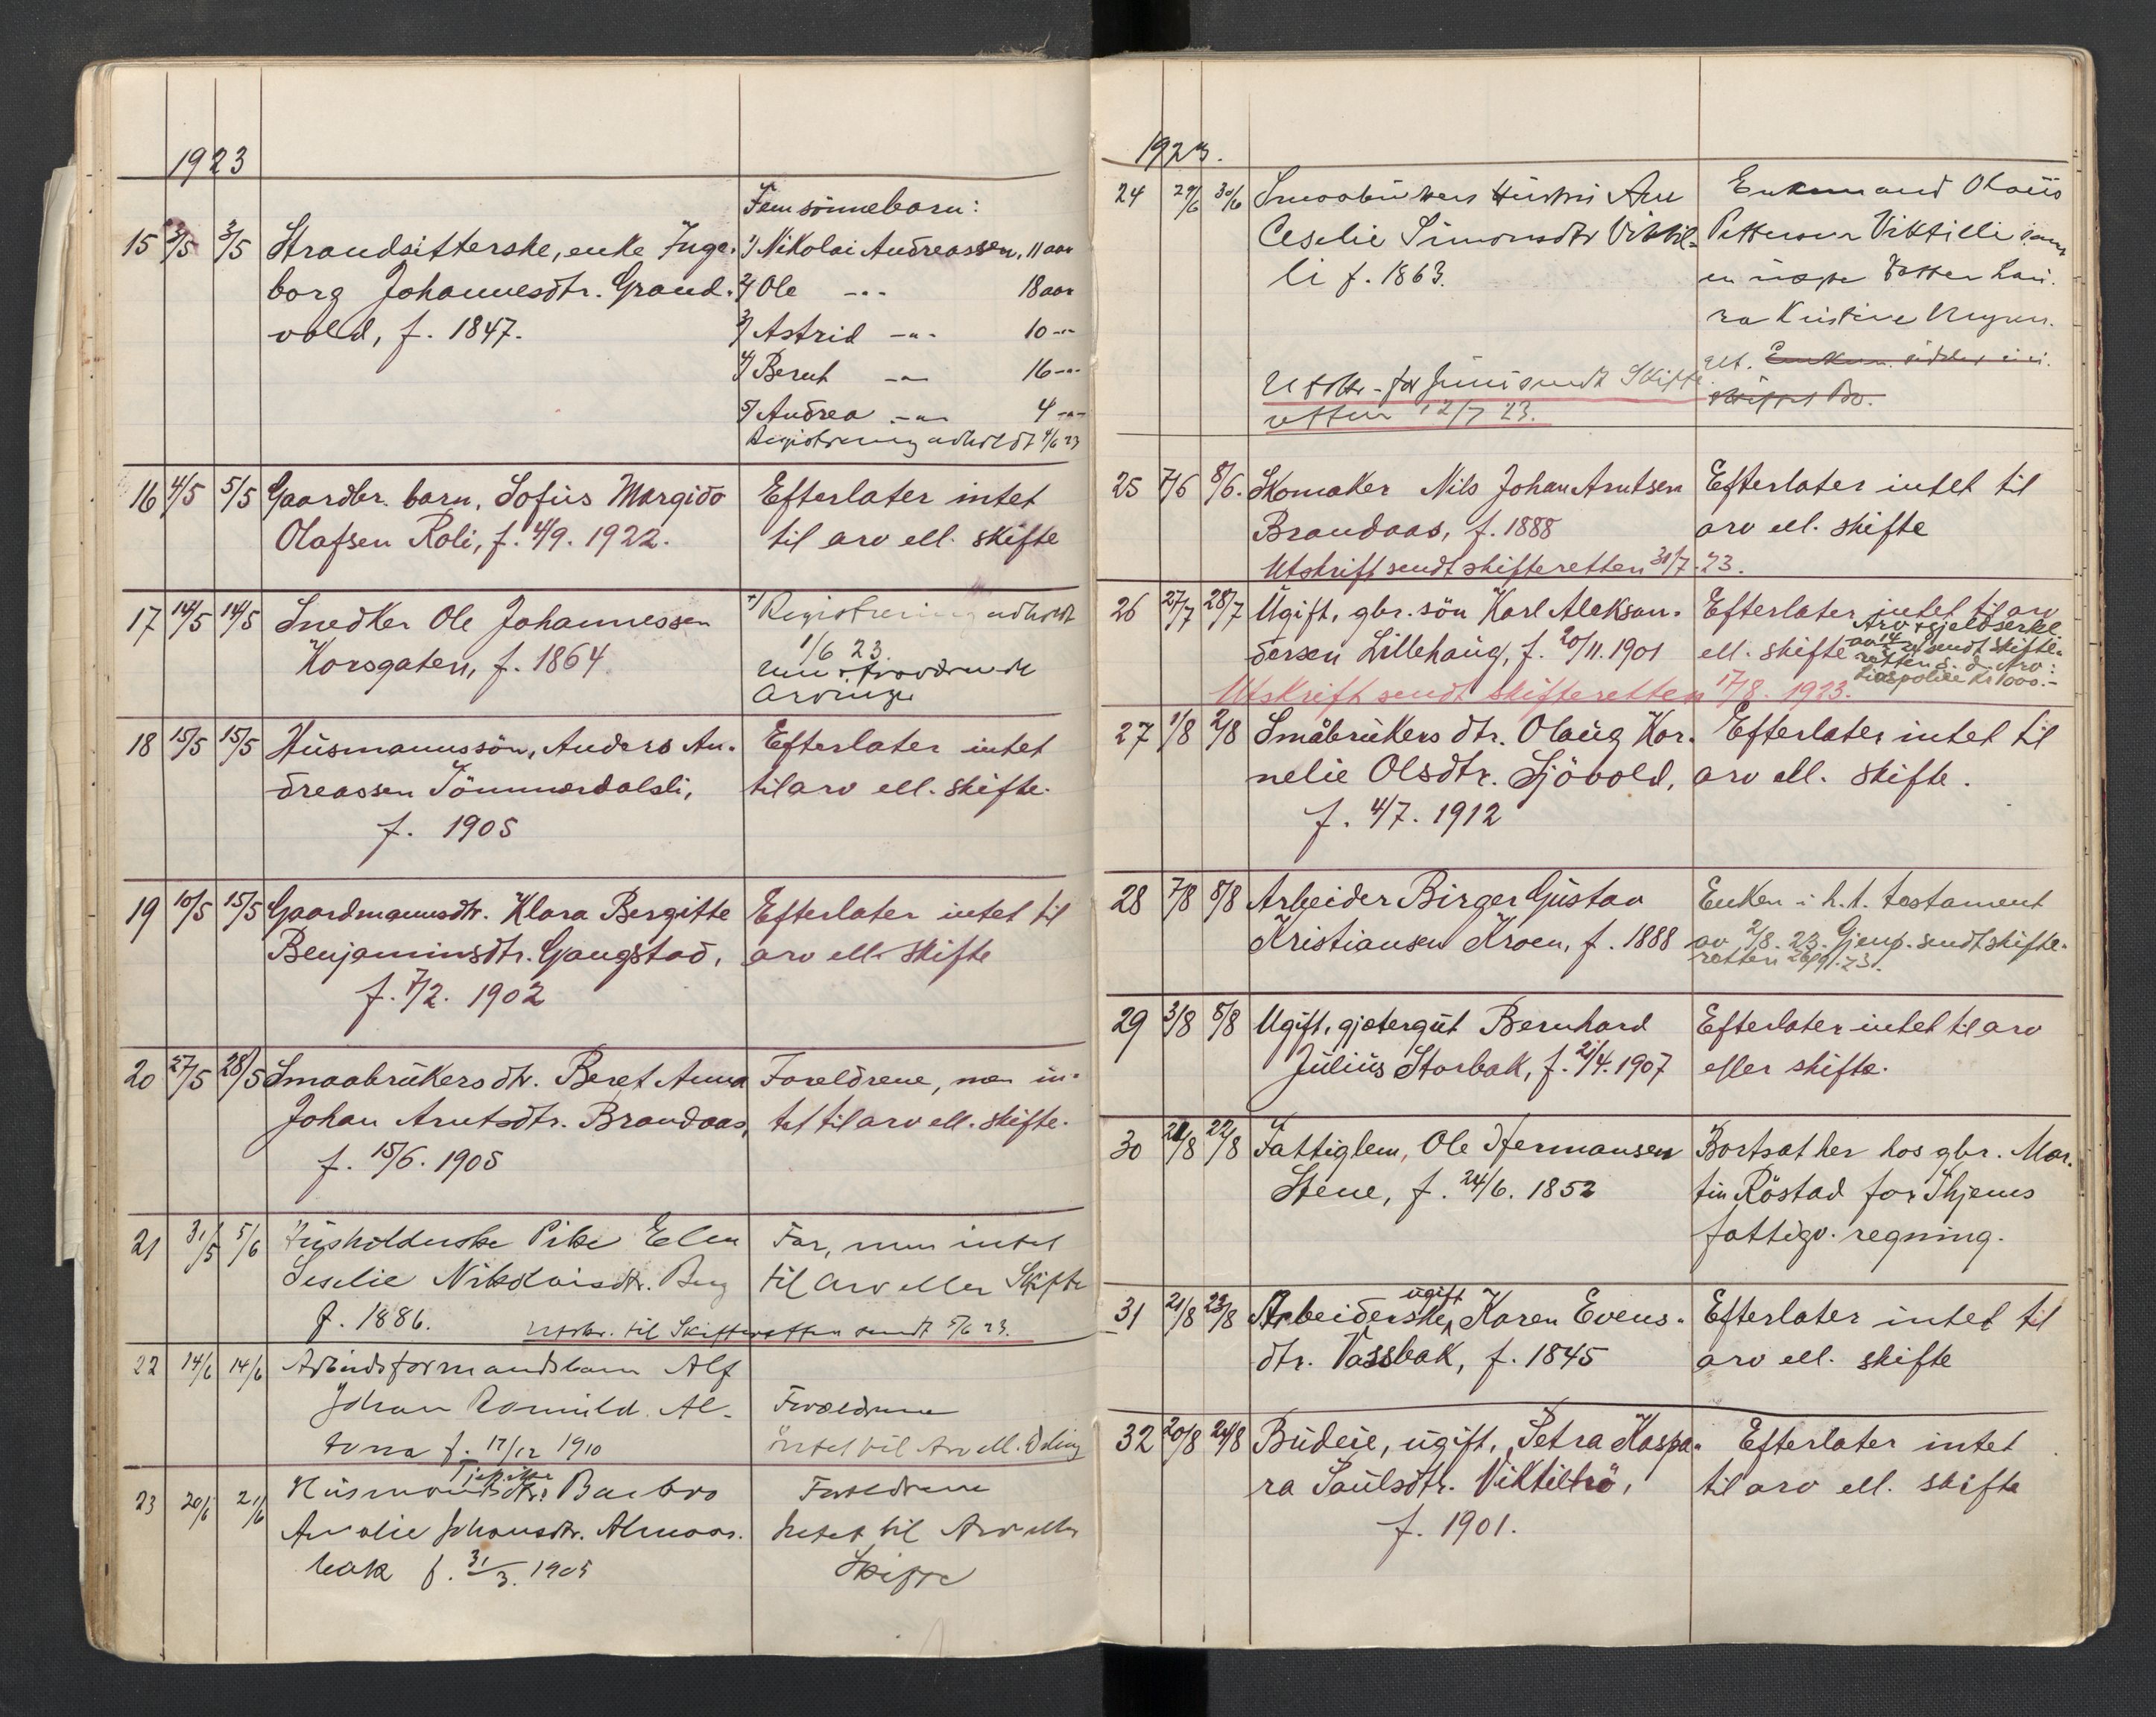 1923
Fem sönnebarn:
15 3/5 3/5 Strandsitterske, enke Inge- 1) Nikolai Andreassen, 11 aar
borg Johannesdtr. Grand- 2) Ole -"- 18 aar
vold, f. 1847. 3) Astrid -"- 10 -"-
4) Berut -"- 16 -"-
5) Andrea -"- 4 -"-
Registrering avholdt 4/6 23
16 4/5 5/5 Gaardbr. barn, Sofus Margido Efterlater intet
Olafsen Roli, f. 4/9. 1922. til arv ell. skifte
17 14/5 14/5 Snedker Ole Johannessen Registrering avholdt
Korsgaten, f. 1864 1/6 23.
Arvinger
18 15/5 15/5 Husmannssön, Anders An- Efterlater intet
dreassen Tömmerdalsli, til arv ell. skifte.
f. 1905
19 10/5 15/5 Gaardmannsdtr. Klara Bergitte Efterlater intet til
Benjaminsdtr. Gangstad, arv ell. skifte
f. 7/2. 1902
20 27/5 28/5 Smaabrukers dtr. Beret Anna Foreldrene, men in-
Johan Arntsdtr. Brandaas, tet til arv ell. skifte.
f. 15/6. 1905
21 31/5 5/6 Husholderske Pike Elen Far, men intet
Seselie Nikolaisdtr. Berg til arv eller Skifte
f. 1886. Utskr. til Skifteretten sendt 5/6 23.
22 14/6 14/6 Arbeidsformandsbarn Alf
Johan Romuld. Al- Forældrene
f. 17/12 1910 intet til Arv ell. Deling
23 20/6 21/6 Husmands dtr. Barbro Foreldrene
Amalie Johansdtr. Almaas- Intet til Arv eller
bak f. 31/3. 1905 Skifte
1923.
24 29/6 30/6 Smaabrukers Hustru Ane Enkemand Olaus
Ceselie Simonsdtr Viktil- Pettersen Viktilli samt
li f. 1863. en datter Lau-
ra Kristine
Utskr. for Juni sendt Skifte- gift.
retten 12/7 23. Bo.
25 7/6 8/6. Skomaker Nils Johan Arntsen Efterlater intet til
Brandaas, f. 1888 arv ell. skifte
Utskrift sendt skifteretten 31/7. 23.
26 27/7 28/7 Ugift, gbr. sön Karl Aleksan- Efterlater intet til arv
dersen Lillehaug, f. 20/11. 1901 ell. skifte Arv & gjeldserkl.
av 14 sendt skifte-
retten s. d. Arv:
livspolise kr 1000.-
Utskrift sendt skifteretten 17/8. 1923.
27 1/8 2/8 Småbrukers dtr. Olaug Kor- Efterlater intet til
nelie Olsdtr. Sjövold, arv ell. skifte.
f. 4/7. 1912
28 7/8 8/8 Arbeider Birger Gustav Enken i h. t. testament
Kristiansen Kroen, f. 1888 av 2/8. 23. Gjenp. sendt skifte-
retten 26/9. 23.
29 3/8 8/8 Ugift, gjetergut Bernhard Efterlater intet til arv
Julius Storbak, f. 21/4. 1907 eller skifte.
30 21/8 22/8 Fattiglem, Ole Hermansen Bortsat her hos gbr. Mar-
Stene, f. 24/6. 1852 tin Röstad for Skjenes
fattigv. regning.
31 21/8 23/8 Arbeiderske, ugift Karen Evens- Efterlater intet til
dtr. Vassbak, f. 1845 arv ell. skifte
32 20/8 24/8 Budeie, ugift, Petra Kaspa- Efterlater intet
ra Paulsdtr. Viktiltrö, til arv ell. skifte
f. 1901.